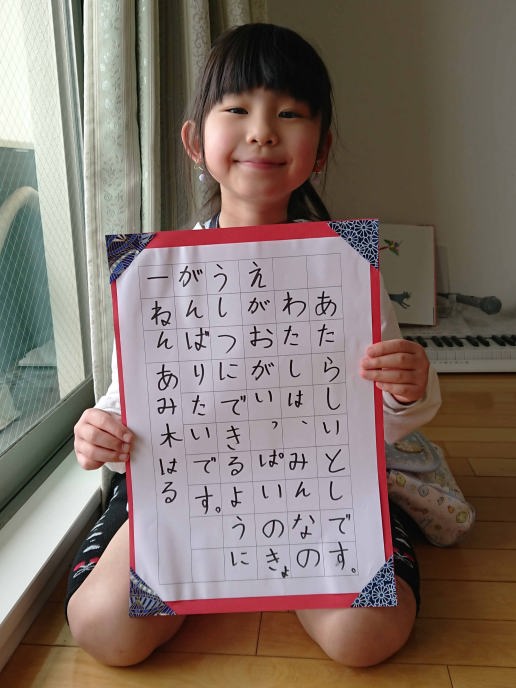 あたらしいとしです。
わたしは、みんなの
えがおがいっぱいのきょ
うしつにできるように
がんばりたいです。
一ねん あみ木はる